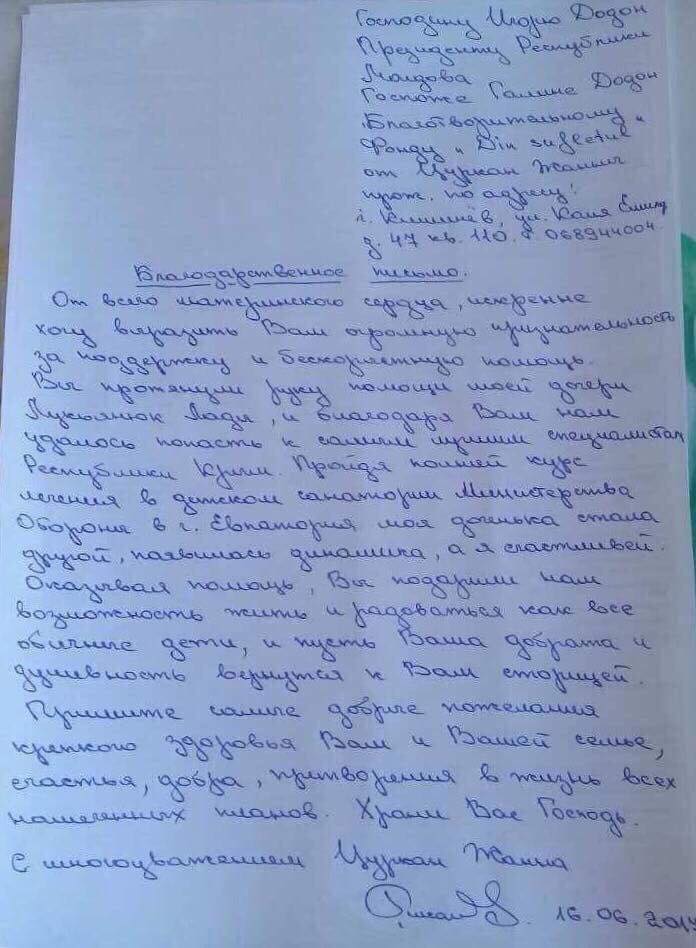 Господину Игорю Додон
Президенту Республики
Молдова
Госпоже Галине Додон
Благотворительному
Фонду „Din sufletul"
от Цуркан Жанны
прож. по адресу:
г. Кишинёв, ул. Каля Ешилор
д. 47 кв. 110. т. 068944004.
Благодарственное письмо.
От всего материнского сердца, искренне
хочу выразить Вам огромную признательность
за поддержку и бескорыстную помощь.
Вы протянули руку помощи моей дочери
Лукьянюк Ладе, и благодаря Вам нам
удалось попасть к самым лучшим специалистам
Республики Крым. Пройдя полный курс
лечения в детском санатории Министерства
Обороны в г. Евпатория моя доченька стала
другой, появилась динамика, а я счастливей.
Оказывая помощь, Вы подарили нам
возможность жить и радоваться как все
обычные дети, и пусть Ваша доброта и
душевность вернутся к Вам сторицей.
Примите самые добрые пожелания
крепкого здоровья Вам и Вашей семье,
счастья, добра, притворения в жизнь всех
намеченных планов. Храни Вас Господь.
С многоуважением Цуркан Жанна
16.06.201